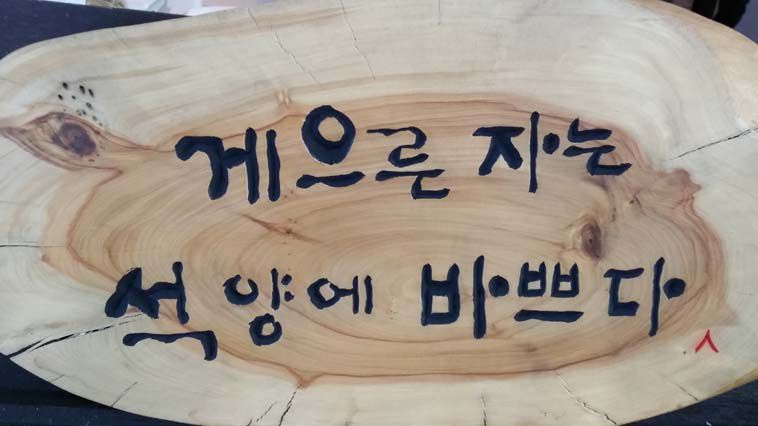 게으른 자는
석양에 바쁘다